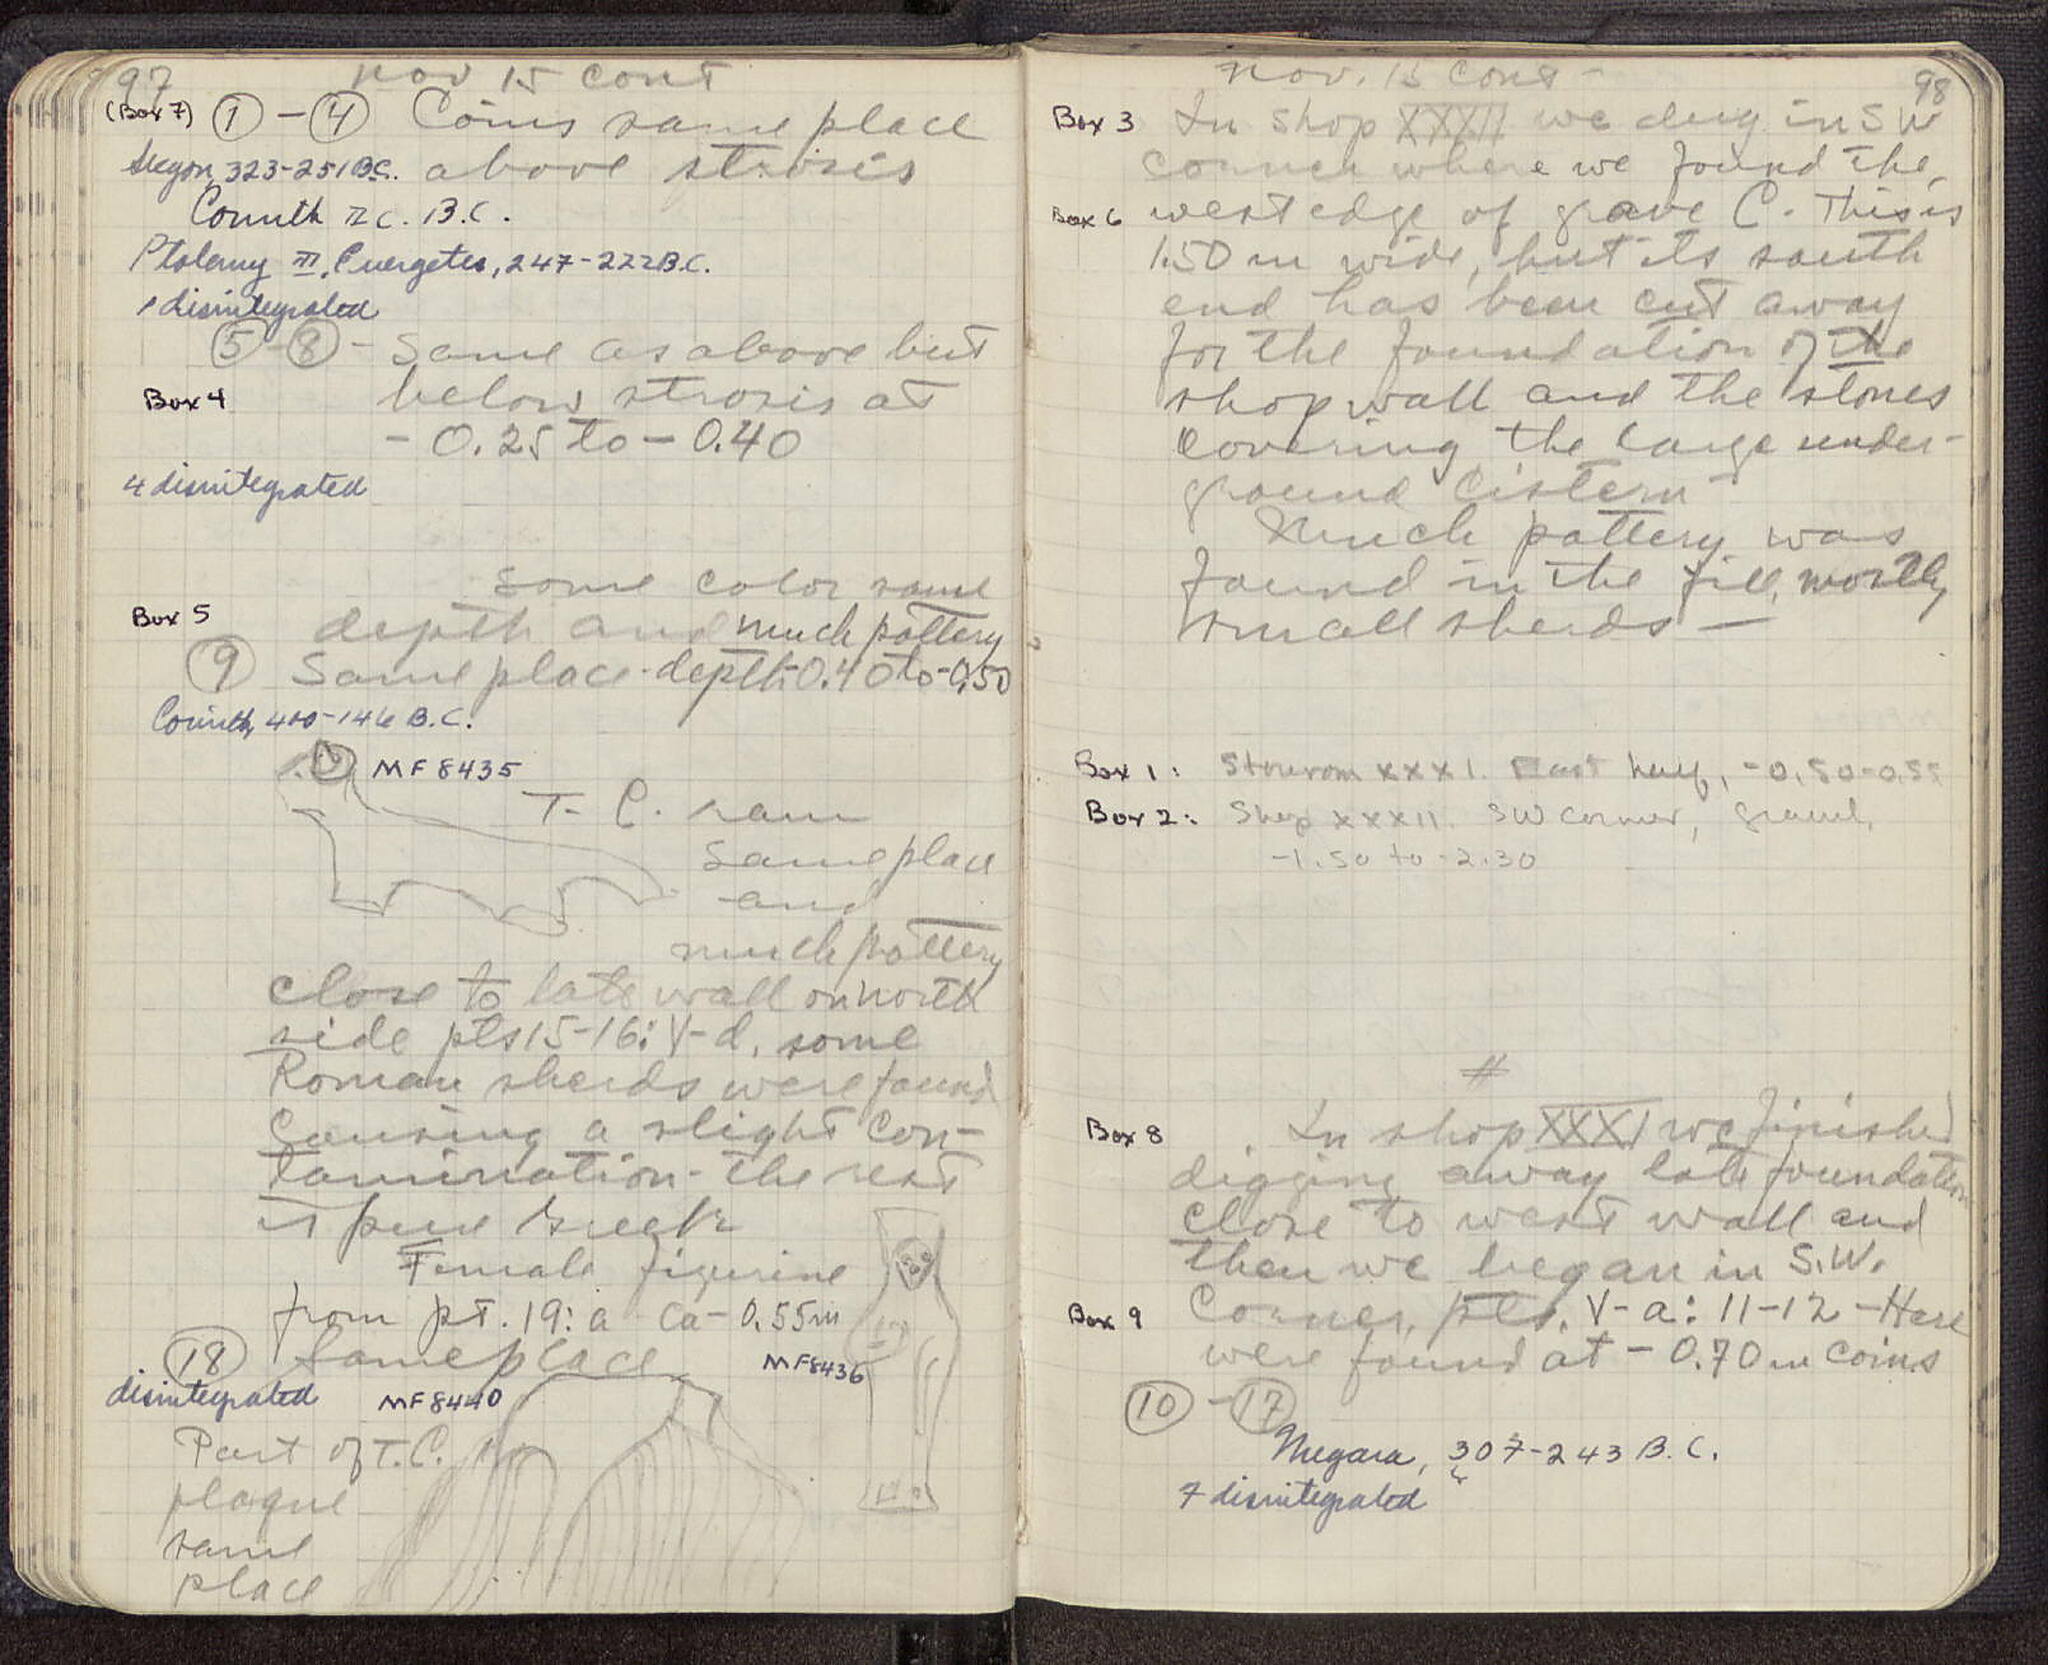 97
Nov 15 cont
(Box 7) ① - ④ Coins same place
Sicyon, 323-251 B.C. above strosis
Corinth IV c. B.C.
Ptolemy III, Euergetes, 247-222 B.C.
1 disintegrated
⑤ - ⑧ - Same as above but
Box 4 below strosis at
- 0.25 to - 0.40
4 disintegrated
some color same
Box 5 depth and much pottery
⑨ Same place - depth - 0.40 to - 0.50
Corinth, 400-146 B.C.
MF 8435
T. C. ram
same place
and
much pottery
close to late wall on north
side pts 15-16: V-d, some
Roman sherds were found
causing a slight con-
tamination - the rest
is pure Greek
Female figurine
from pt. 19: a ca - 0.55 m
⑱ Same place MF 8436
disintegrated MF 8440
Part of T.C.
plaque
same
place
98
Nov. 15 cont -
Box 3 In shop XXXII we dug in SW
corner where we found the
Box 6 west edge of grave C. This is
1.50 m wide, but its south
end has been cut away
for the foundation of the
shop wall and the stones
covering the large under-
ground cistern
Much pottery was
found in the fill, mostly
small sherds —
Box 1: Storeroom XXXI. East half, -0.50-0.55
Box 2: Shop XXXII. SW corner, gravel,
-1.50 to -2.30
#
Box 8 In shop XXXI we finished
digging away late foundation
close to west wall and
then we began in S.W.
Box 9 Corner, pts. V-a: 11-12 - Here
were found at - 0.70 m coins
⑩ - ⑰
Megara, 307-243 B.C.
7 disintegrated